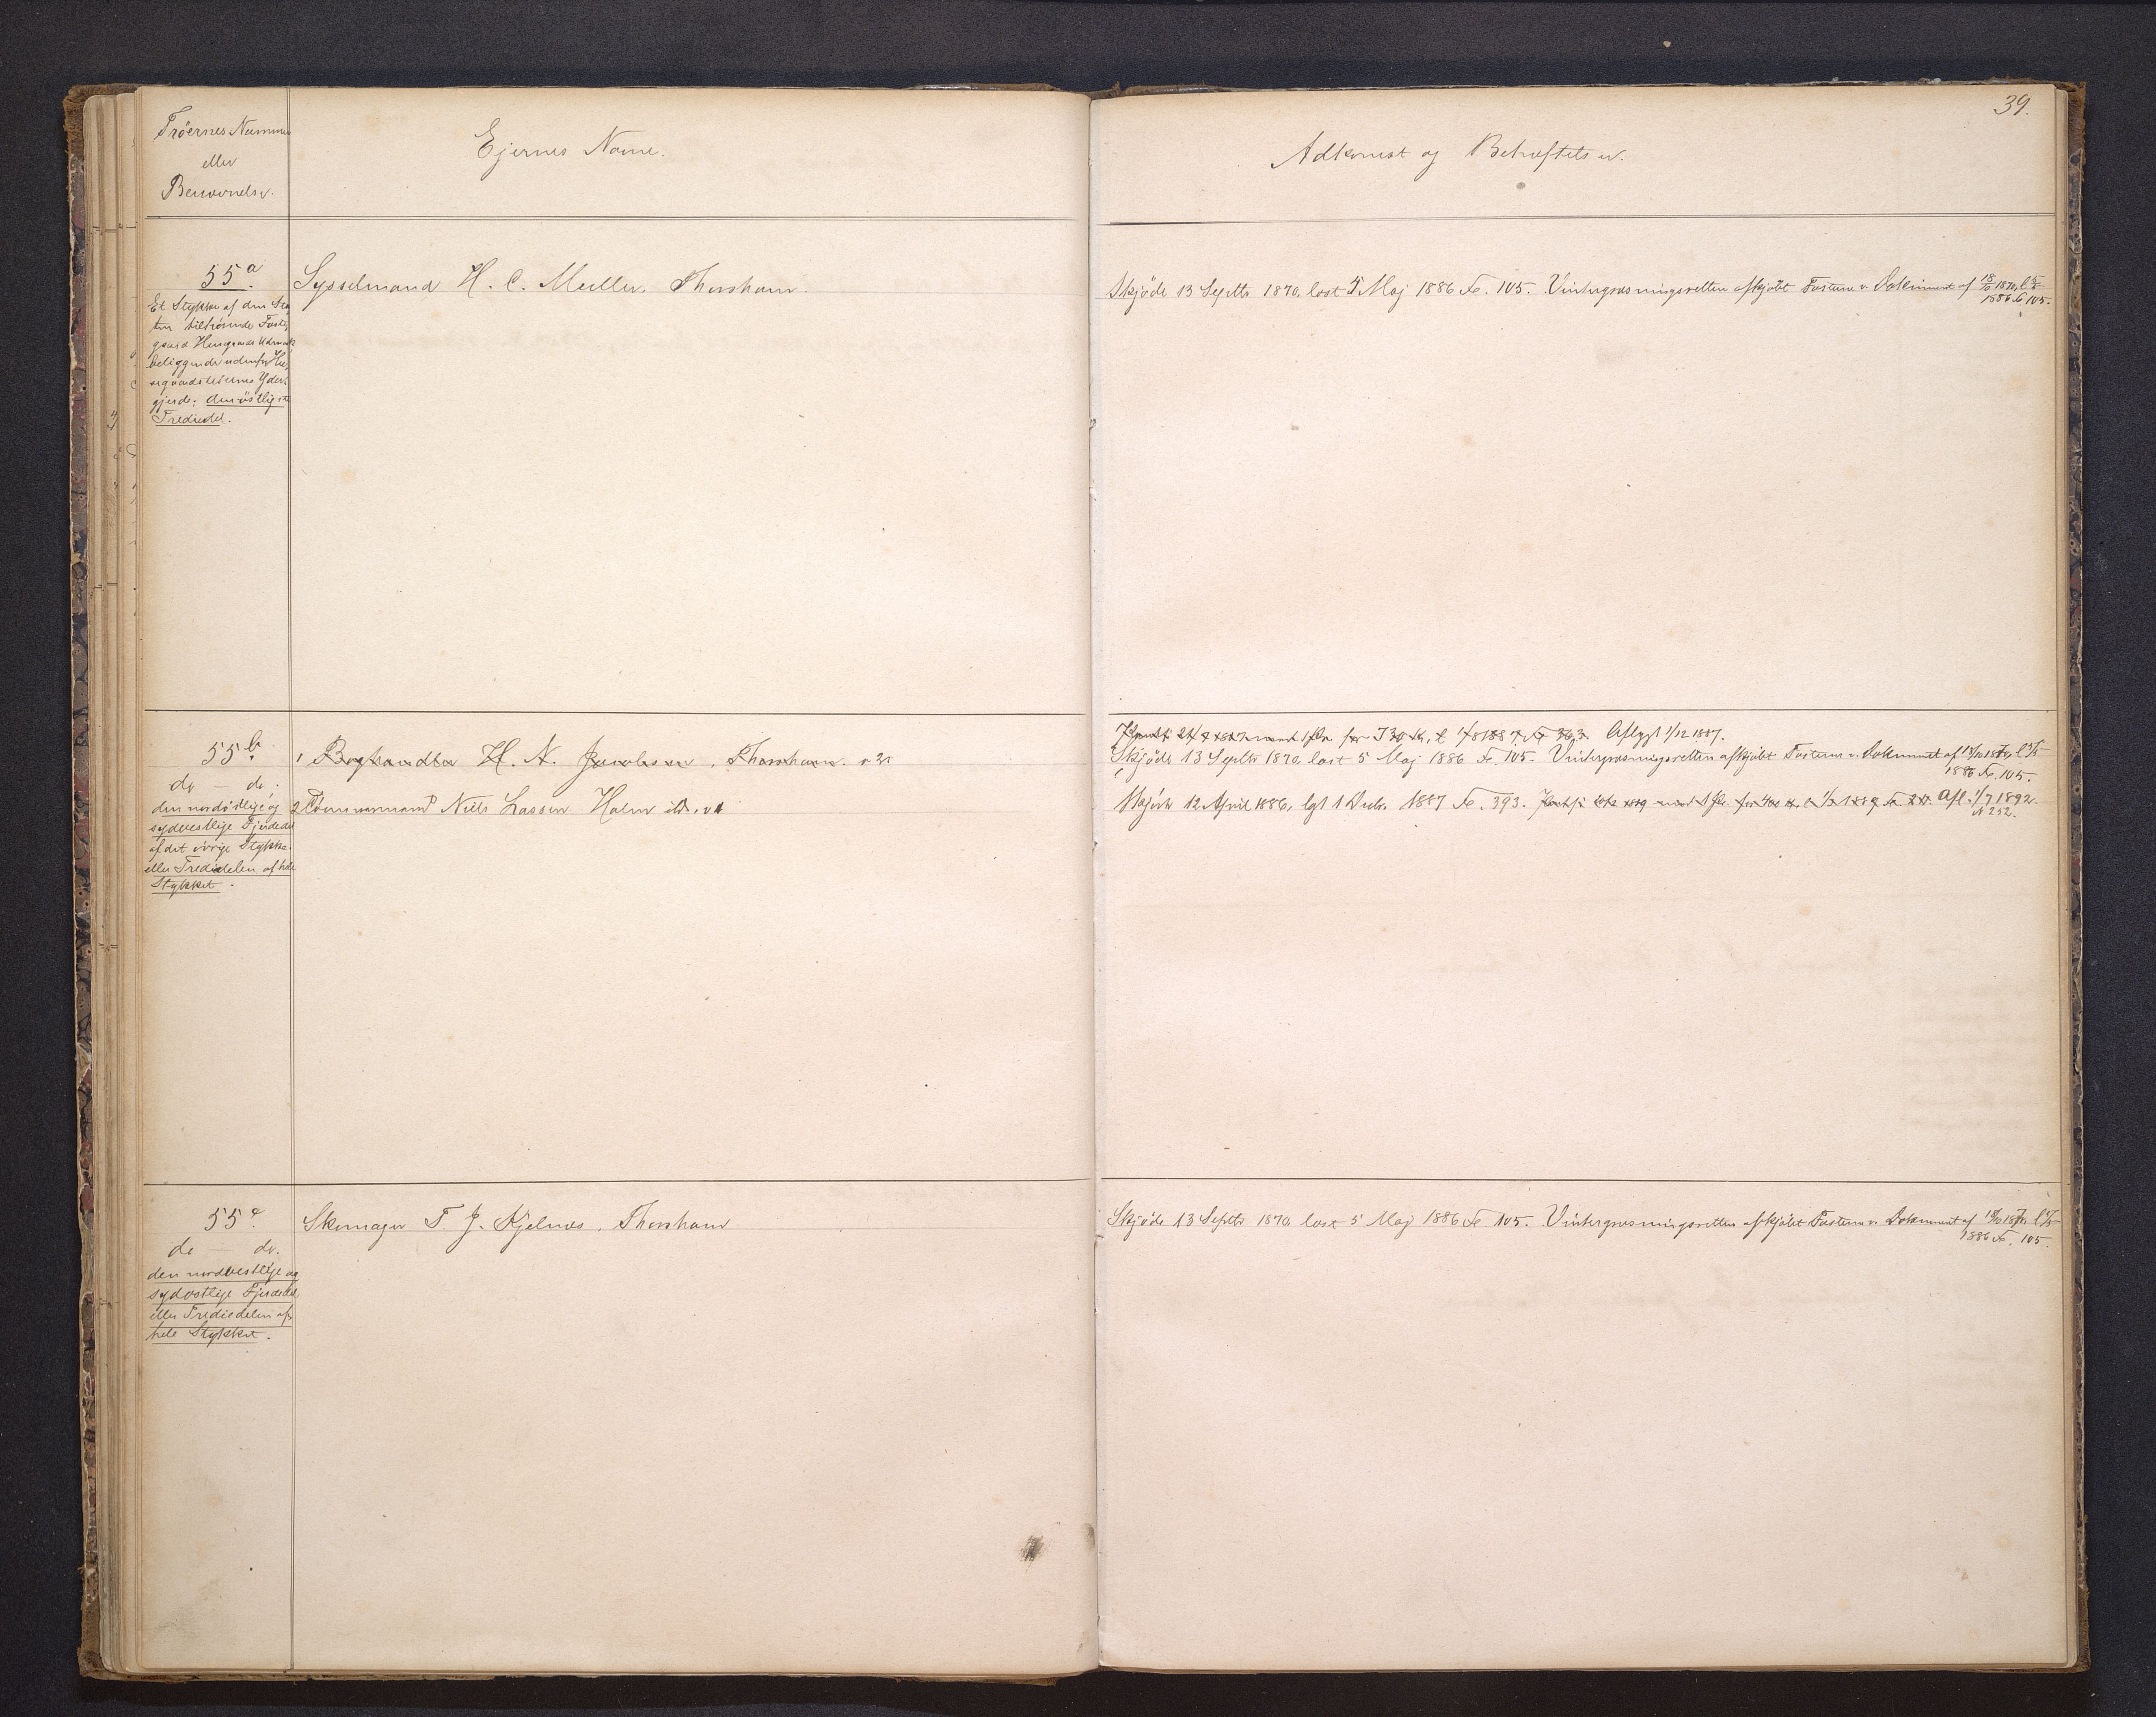 39.
Tröernes Numme
eller
Benævnelse.
Ejernes Navne.
Adkomst og Behæftelser.
55a.
Et Stykke af den Sta
ten tilhörende Fæste
gaard Husgaards Udmark
beliggende udenfor Hu
segaardströernes Yder
gjerde: den östligste
Trediedel.
Sysselmand H. C. Muller. Thorshavn.
Skjöde 13 Septbr 1870, læst 5 Maj 1886 No. 105. Vintergræsningsretten afkjöbt Fæsteren v. Dokument af 18/10 1870, l 5/5
1886 No 105.
55b.
do — do:
den nordöstlige og
sydvestlige Fjerdedel
af det övrige Stykke
eller Trediedelen af hele
Stykket.
1 Boghandler H. N. Jacobsen, Thorshavn. v 2
2 Tömmermand Niels Lassen Holm
Aflyst 1/12 1887.
Skjöde 13 Septbr 1870, læst 5 Maj 1886 No. 105. Vintergræsningsretten afkjöbt Fæsteren v. Dokument af 18/10 1870, l 5/5
1886 No. 105.
Skjöde 12 April 1886, lyst 1 Decbr. 1887 No. 393. Afl. 1/7 1892.
N 252.
55c.
do — do.
den nordvestlige og
sydostlige Fjerdedel
eller Trediedelen af
hele Stykket.
Skomager T. J. Kjelnæs, Thorshavn
Skjöde 13 Septbr 1870 læst 5 Maj 1886 No 105. Vintergræsningsretten afkjöbt Fæsteren v. Dokument af 18/10 1870, l 5/5
1886 No. 105.